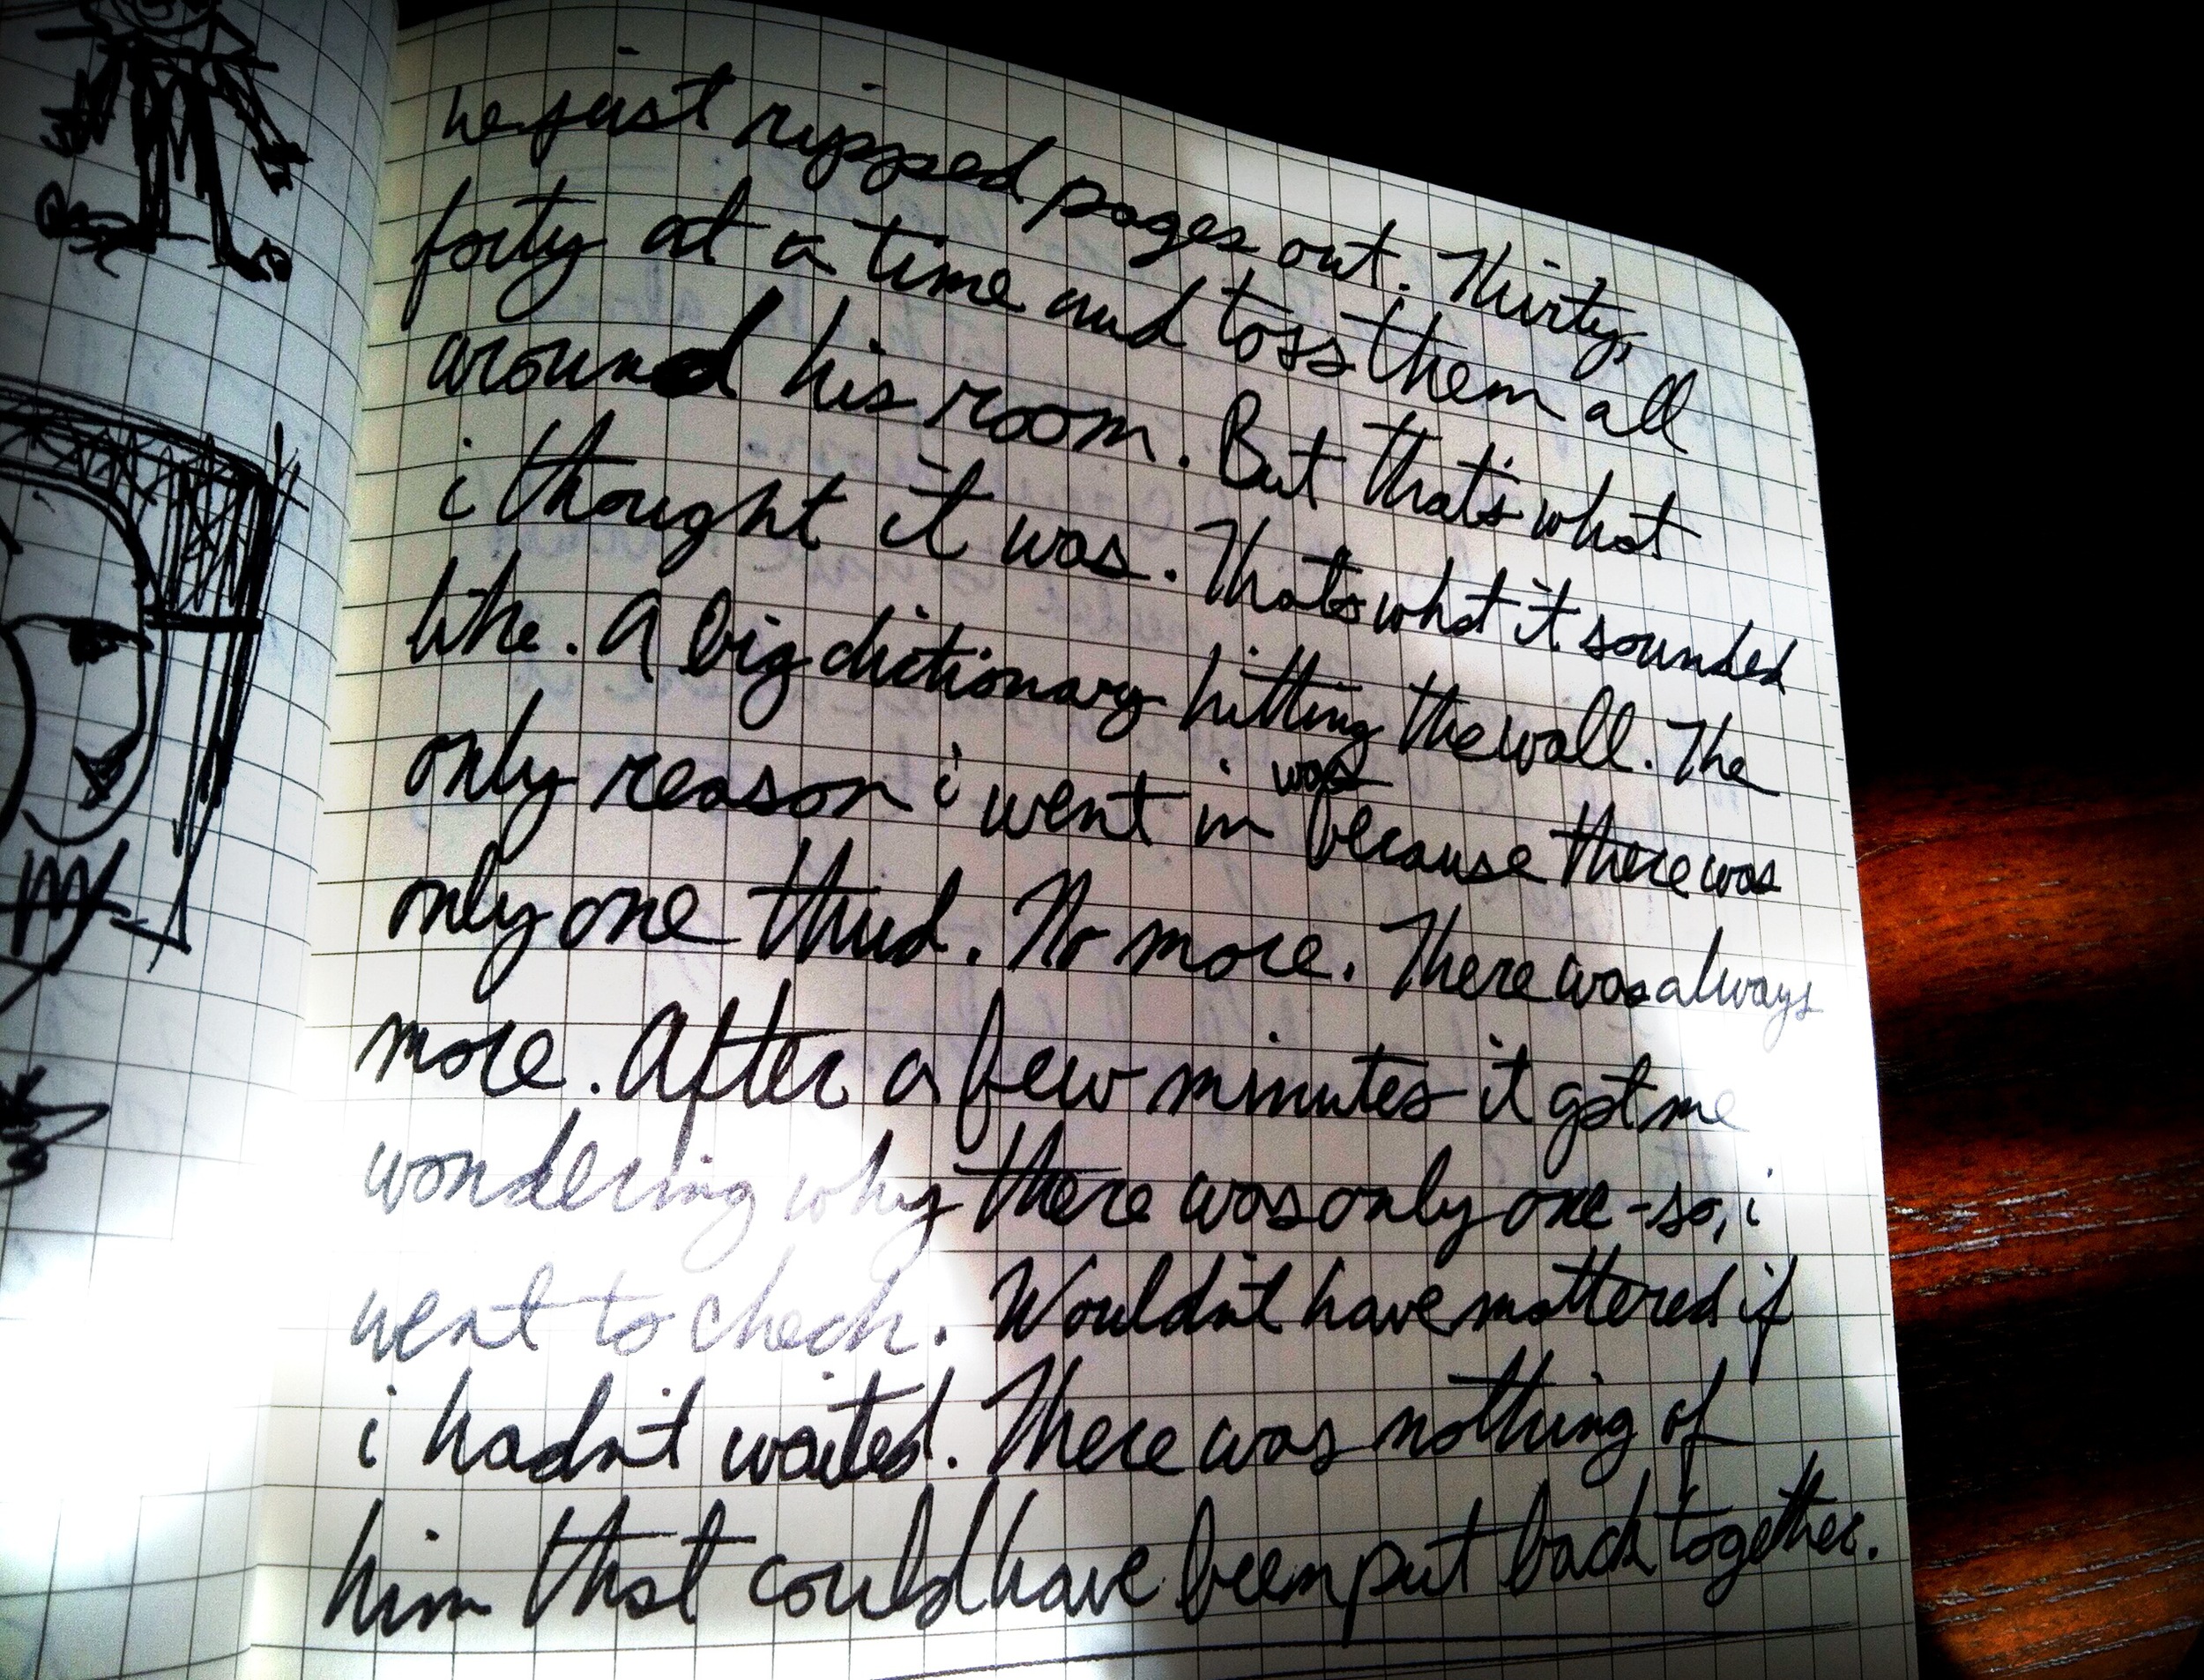 he just ripped pages out. Thirty,
forty at a time and toss them all
around his room. But that's what
i thought it was. That's what it sounded
like. A big dictionary hitting the wall. The
only reason i went in was because there was
only one thud. No more. There was always
more. After a few minutes it got me
wondering why there was only one - so, i
went to check. Wouldn't have mattered if
i hadn't waited. There was nothing of
him that could have been put back together.